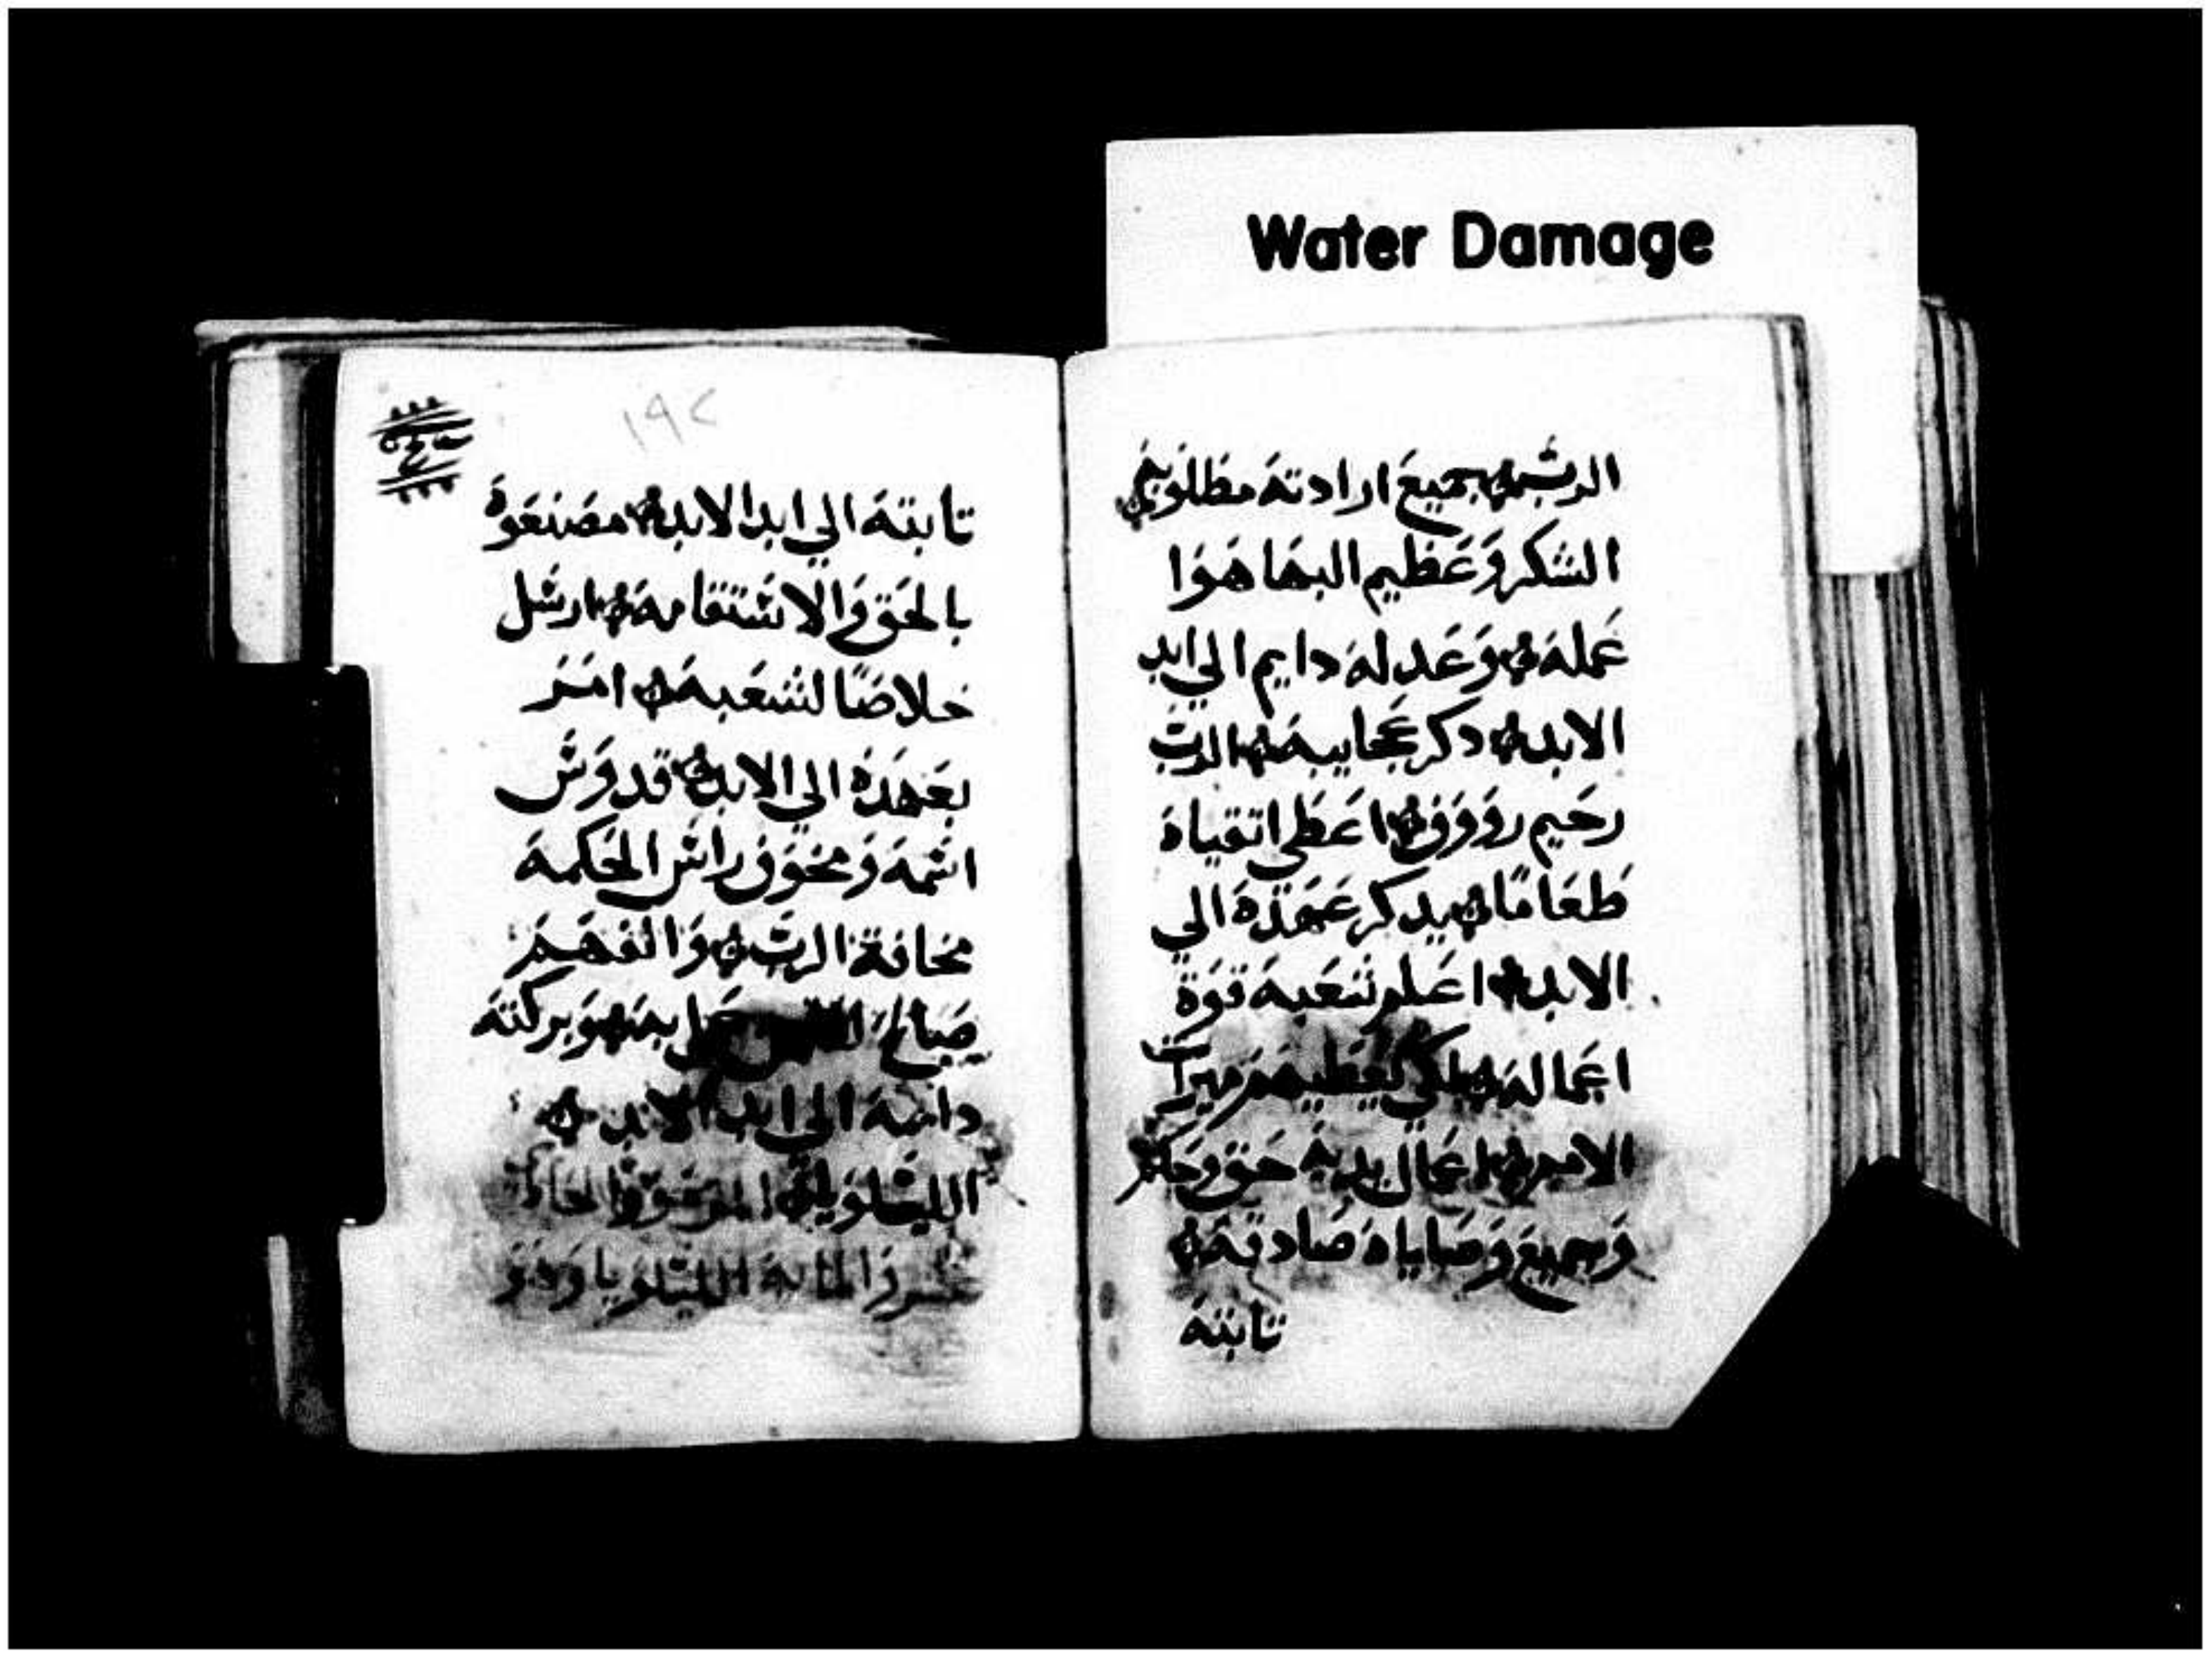 Water Damage
الرب بجميع ارادته مطلوبه
الشكر وعظيم البها هوا
عمله وعدله دايم الي ابد
الابد دكر عجايبه الرب
رحيم رووف اعطي اتقياه
طعاما يدكر عهده الي
الابد اعلم شعبه قوة
اعماله لكي يعطيهم ميرات
الامم اعمال يديه حق وحكم
وجميع وصاياه صادقه
تابته
١٩٢
تابته الي ابد الابد مصنعوة
بالحق والاستقامه ارسل
خلاصا لشعبه امر
بعهده الي الابد قدوس
اسمه ومخوف راس الحكمة
مخافة الرب والفهم
صالح لكل من عمل به وبركته
دايمة الي ابد الابد
الليلويا المزمور الحادي
عشر والمايه الليلويا وهو